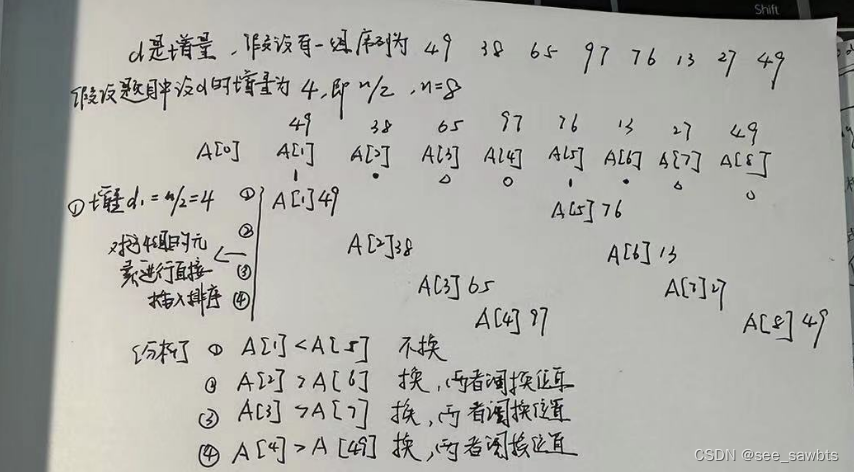 Shift
d是增量，假设没有一组序列为 49 38 65 97 76 13 27 49
假设题目中设d的增量为4，即n/2，n=8
49 38 65 97 76 13 27 49
A[0] A[1] A[2] A[3] A[4] A[5] A[6] A[7] A[8]
①增量d₁=n/2=4 ① A[1]49 A[5]76
② A[2]38 A[6]13
对这4组的元
素进行直接 ③ A[3]65 A[7]27
插入排序 ④ A[4]97 A[8]49
[分析] ① A[1]<A[5] 不换
② A[2]>A[6] 换，两者调换位置
③ A[3]>A[7] 换，两者调换位置
④ A[4]>A[49] 换，两者调换位置
CSDN @see_sawbts